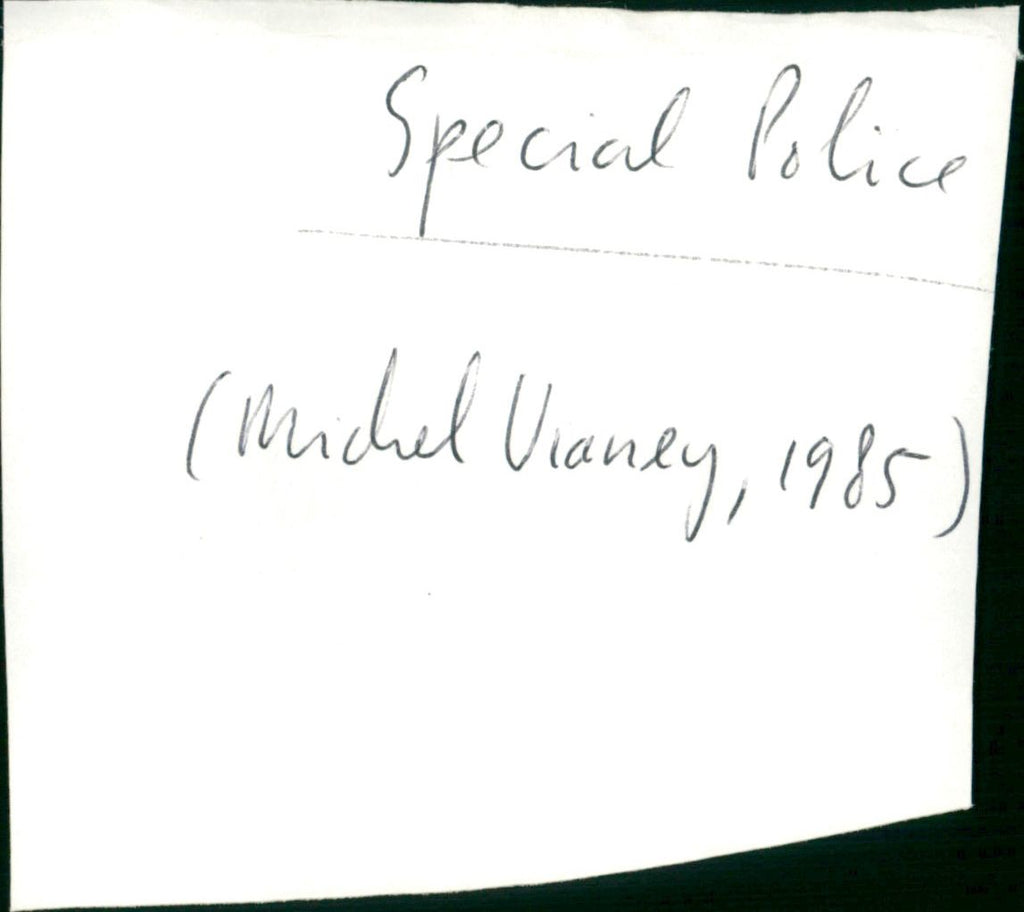 Special Police
(Michel Vianey, 1985)